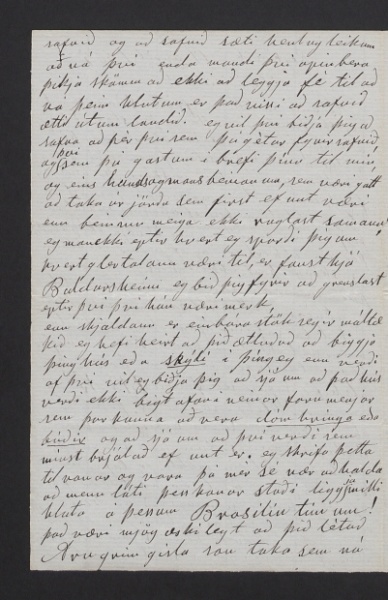 safnið og að safnið sæti heut ug leikum
að ná þvi enda mundi þvi opinbera
þikja skömm að ekki að leggja fé til að
ná þeim hlutum er það vissi að safnið
ætti út um landið. eg vil þvi biðja þig að
safna að þér þvi sem þu getur fyrir safnið,
og þvi sem þu gast um i brefi þinu til min,
og eins hundsogmans beinunum, sem væri gott
að taka úr jörðu sem first ef unt væri
enn beininn meiga ekki ruglast saman!
eg man ekki eptir hvert eg spurði þig um
hvert glertalann væri til, er faust hjá
Baldursheimi eg bið þig fyrir að grenslast
eptir þvi þvi hún væri merk
enn skjöldann er einbóra stökk
eg hefi heirt að þið ætluðuð að biggja
þinghús eða skýli á þingey enn verdi
af þvi vil eg biðja þig að sjá um að það hús
verdi ekki bigt ofan i neinar fornmenjar
sem þar kunna að vera dómhringa eða
búðir og að sjá um að þvi verdi sem
minst brjálað ef unt er. eg skrifa þetta
til vonar og vara þá mér sé nær að halda
að menn láti þesskonar staði liggja milli
hluta á þessum Brasiliu timum!
það væri mjög æskilegt að þið létuð
Arngrim gisla son taka sem ná